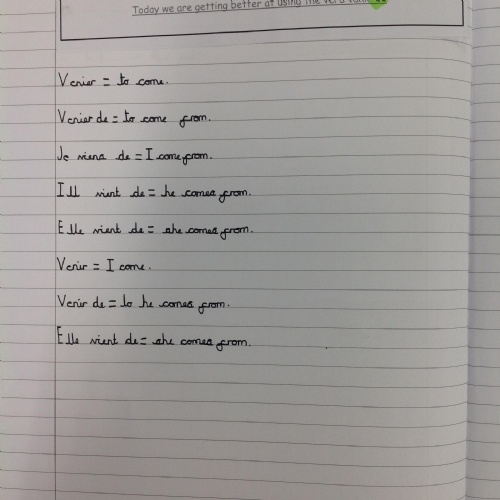 Today we are getting better at using the verb
Venier = to come.
Venier de = to come from.
Je viens de = I come from.
Ill vient de = he comes from.
Elle vient de = she comes from.
Venir = I come.
Venir de = to he comes from.
Elle vient de = she comes from.